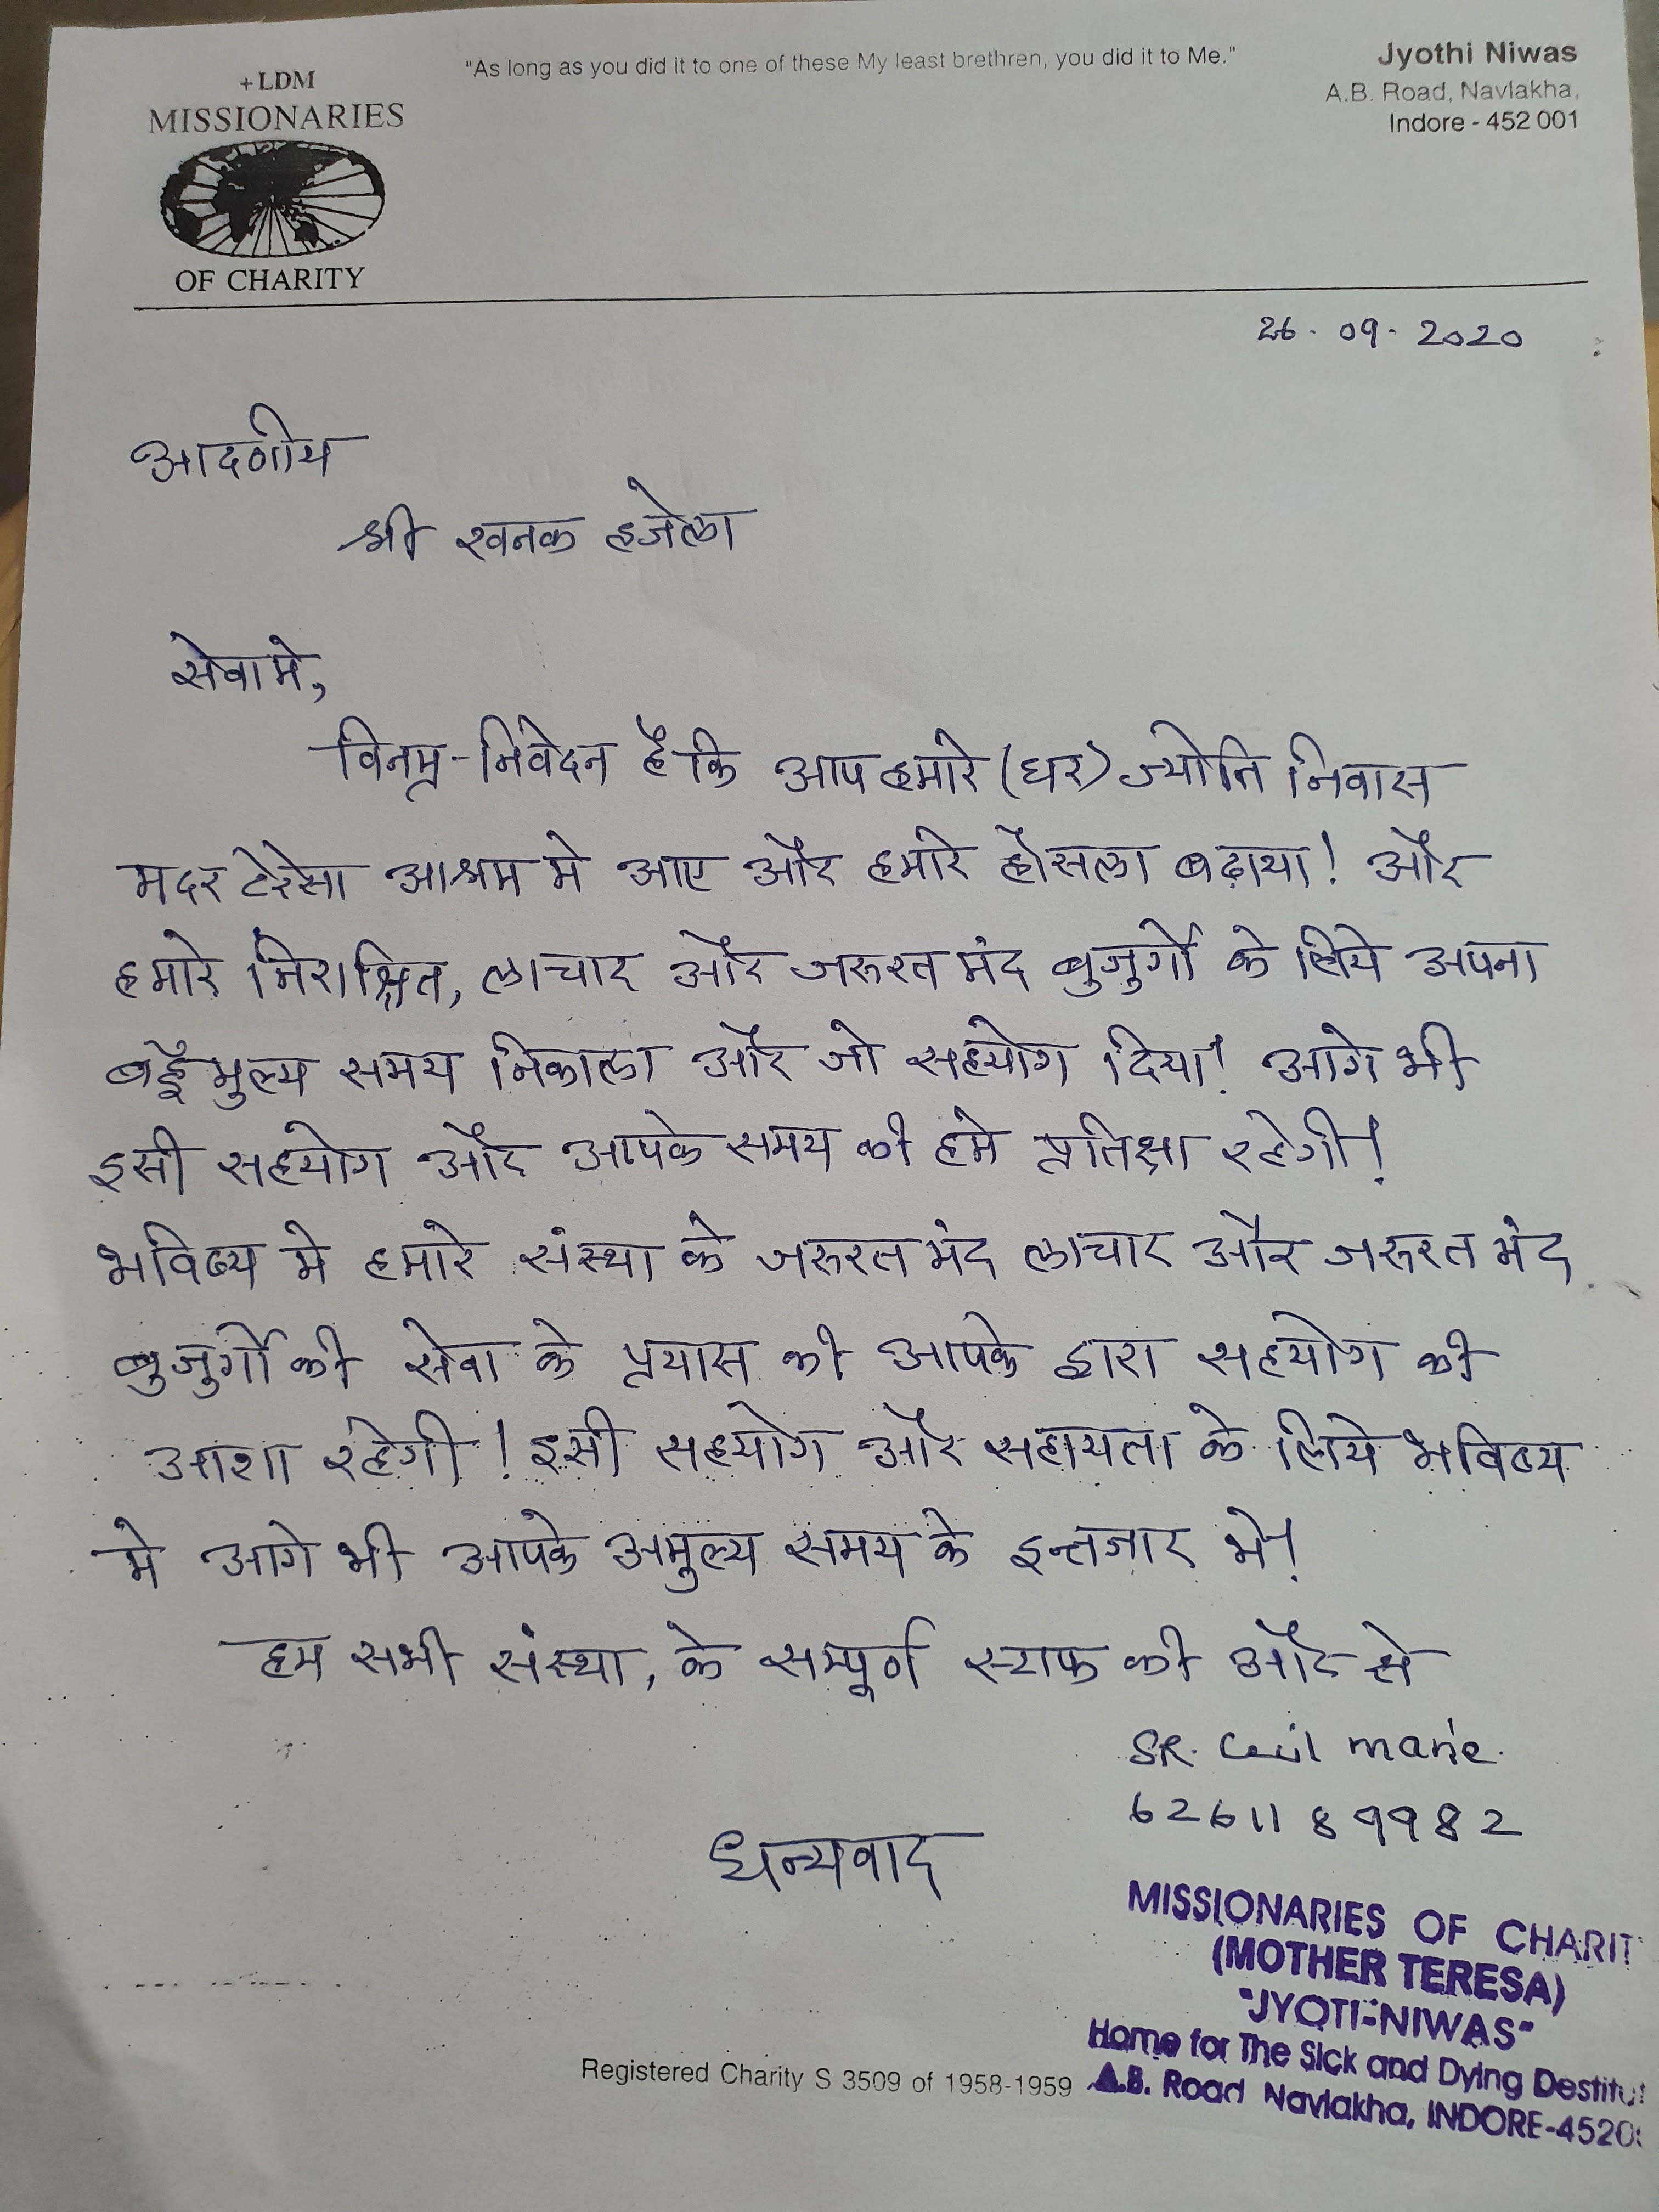 "As long as you did it to one of these My least brethren, you did it to Me."
Jyothi Niwas
A.B. Road, Navlakha,
Indore - 452 001
+LDM
MISSIONARIES
OF CHARITY
26-09-2020
आदणीय
श्री खनक हजेला
सेवा मे,
विनम्र-निवेदन है कि आप हमारे (घर) ज्योति निवास
मदर टेरेसा आश्रम मे आए और हमारे हौसला बढ़ाया! और
हमारे निराश्रित, लाचार और जरुरत मंद बुजुर्गो के लिये अपना
मुल्य समय निकाला और जो सहयोग दिया! आगे भी
इसी सहयोग और आपके समय की हमे प्रतिक्षा रहेगी!
भविष्य मे हमारे संस्था के जरुरत मंद लाचार और जरुरत मंद
बुजुर्गो की सेवा के प्रयास की आपके द्वारा सहयोग की
आशा रहेगी! इसी सहयोग और सहायता के लिये भविष्य
मे आगे भी आपके अमुल्य समय के इन्तजार मे!
हम सभी संस्था, के सम्पूर्ण स्टाफ की और से
SR. Cecil marie.
6261189982
धन्यवाद
MISSIONARIES OF CHARIT
(MOTHER TERESA)
"JYOTI-NIWAS"
Home for The Sick and Dying Destitu
A.B. Road Navlakha, INDORE-4520
Registered Charity S 3509 of 1958-1959